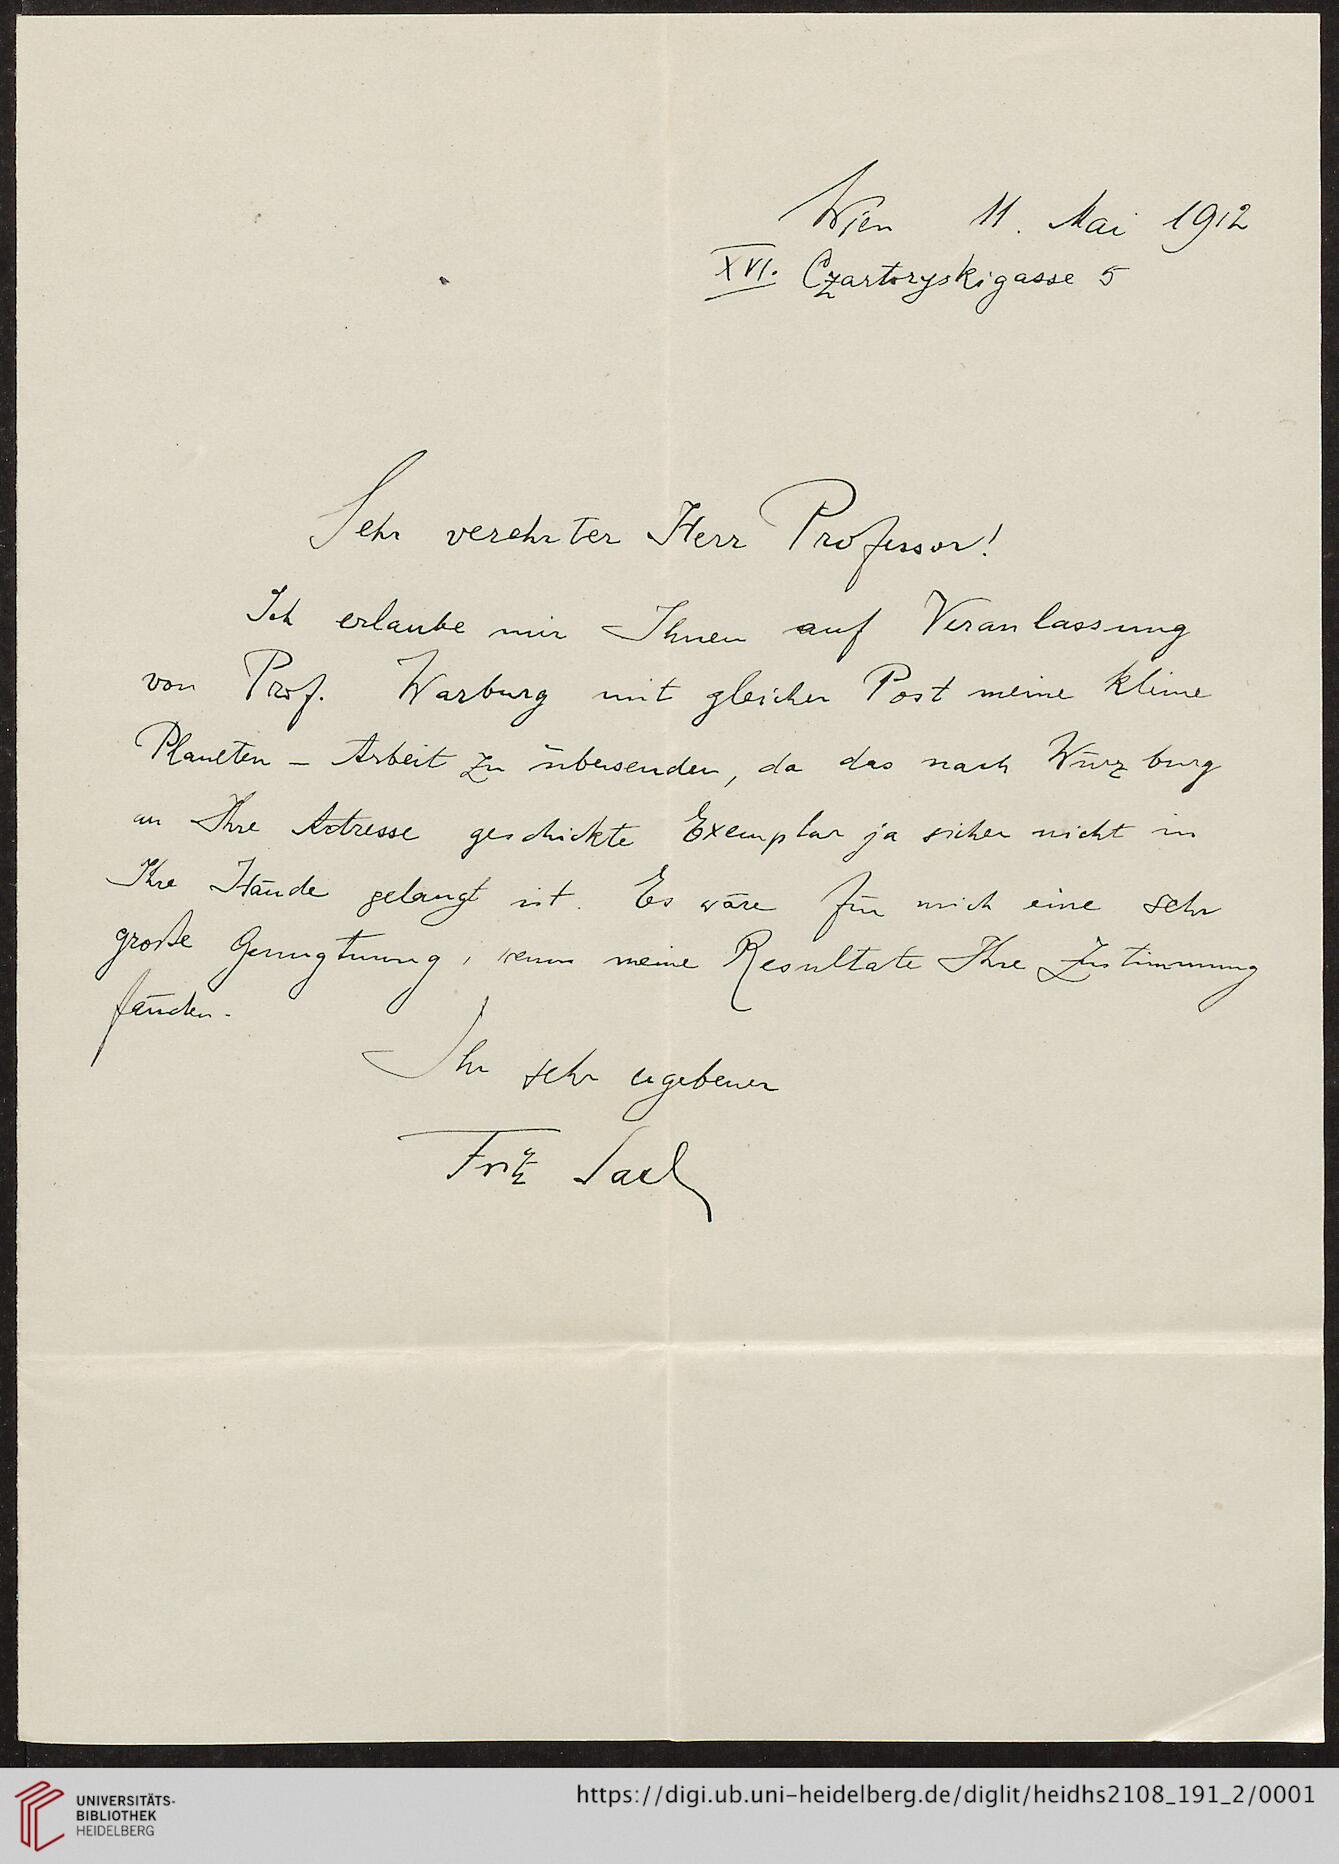 Wien 11. Mai 1912
XVI. Czartoryskigasse 5
Sehr verehrter Herr Professor!
Ich erlaube mir Ihnen auf Veranlassung
von Prof. Warburg mit gleicher Post meine kleine
Planeten - Arbeit zu übersenden, da das nach Würzburg
an Ihre Adresse geschickte Exemplar ja sicher nicht in
Ihre Hände gelangt ist. Es wäre für mich eine sehr
große Genugtuung, wenn meine Resultate Ihre Zustimmung
fänden.
Ihr sehr ergebener
Fritz Saxl
UNIVERSITÄTS-
BIBLIOTHEK
HEIDELBERG
https://digi.ub.uni-heidelberg.de/diglit/heidhs2108_191_2/0001